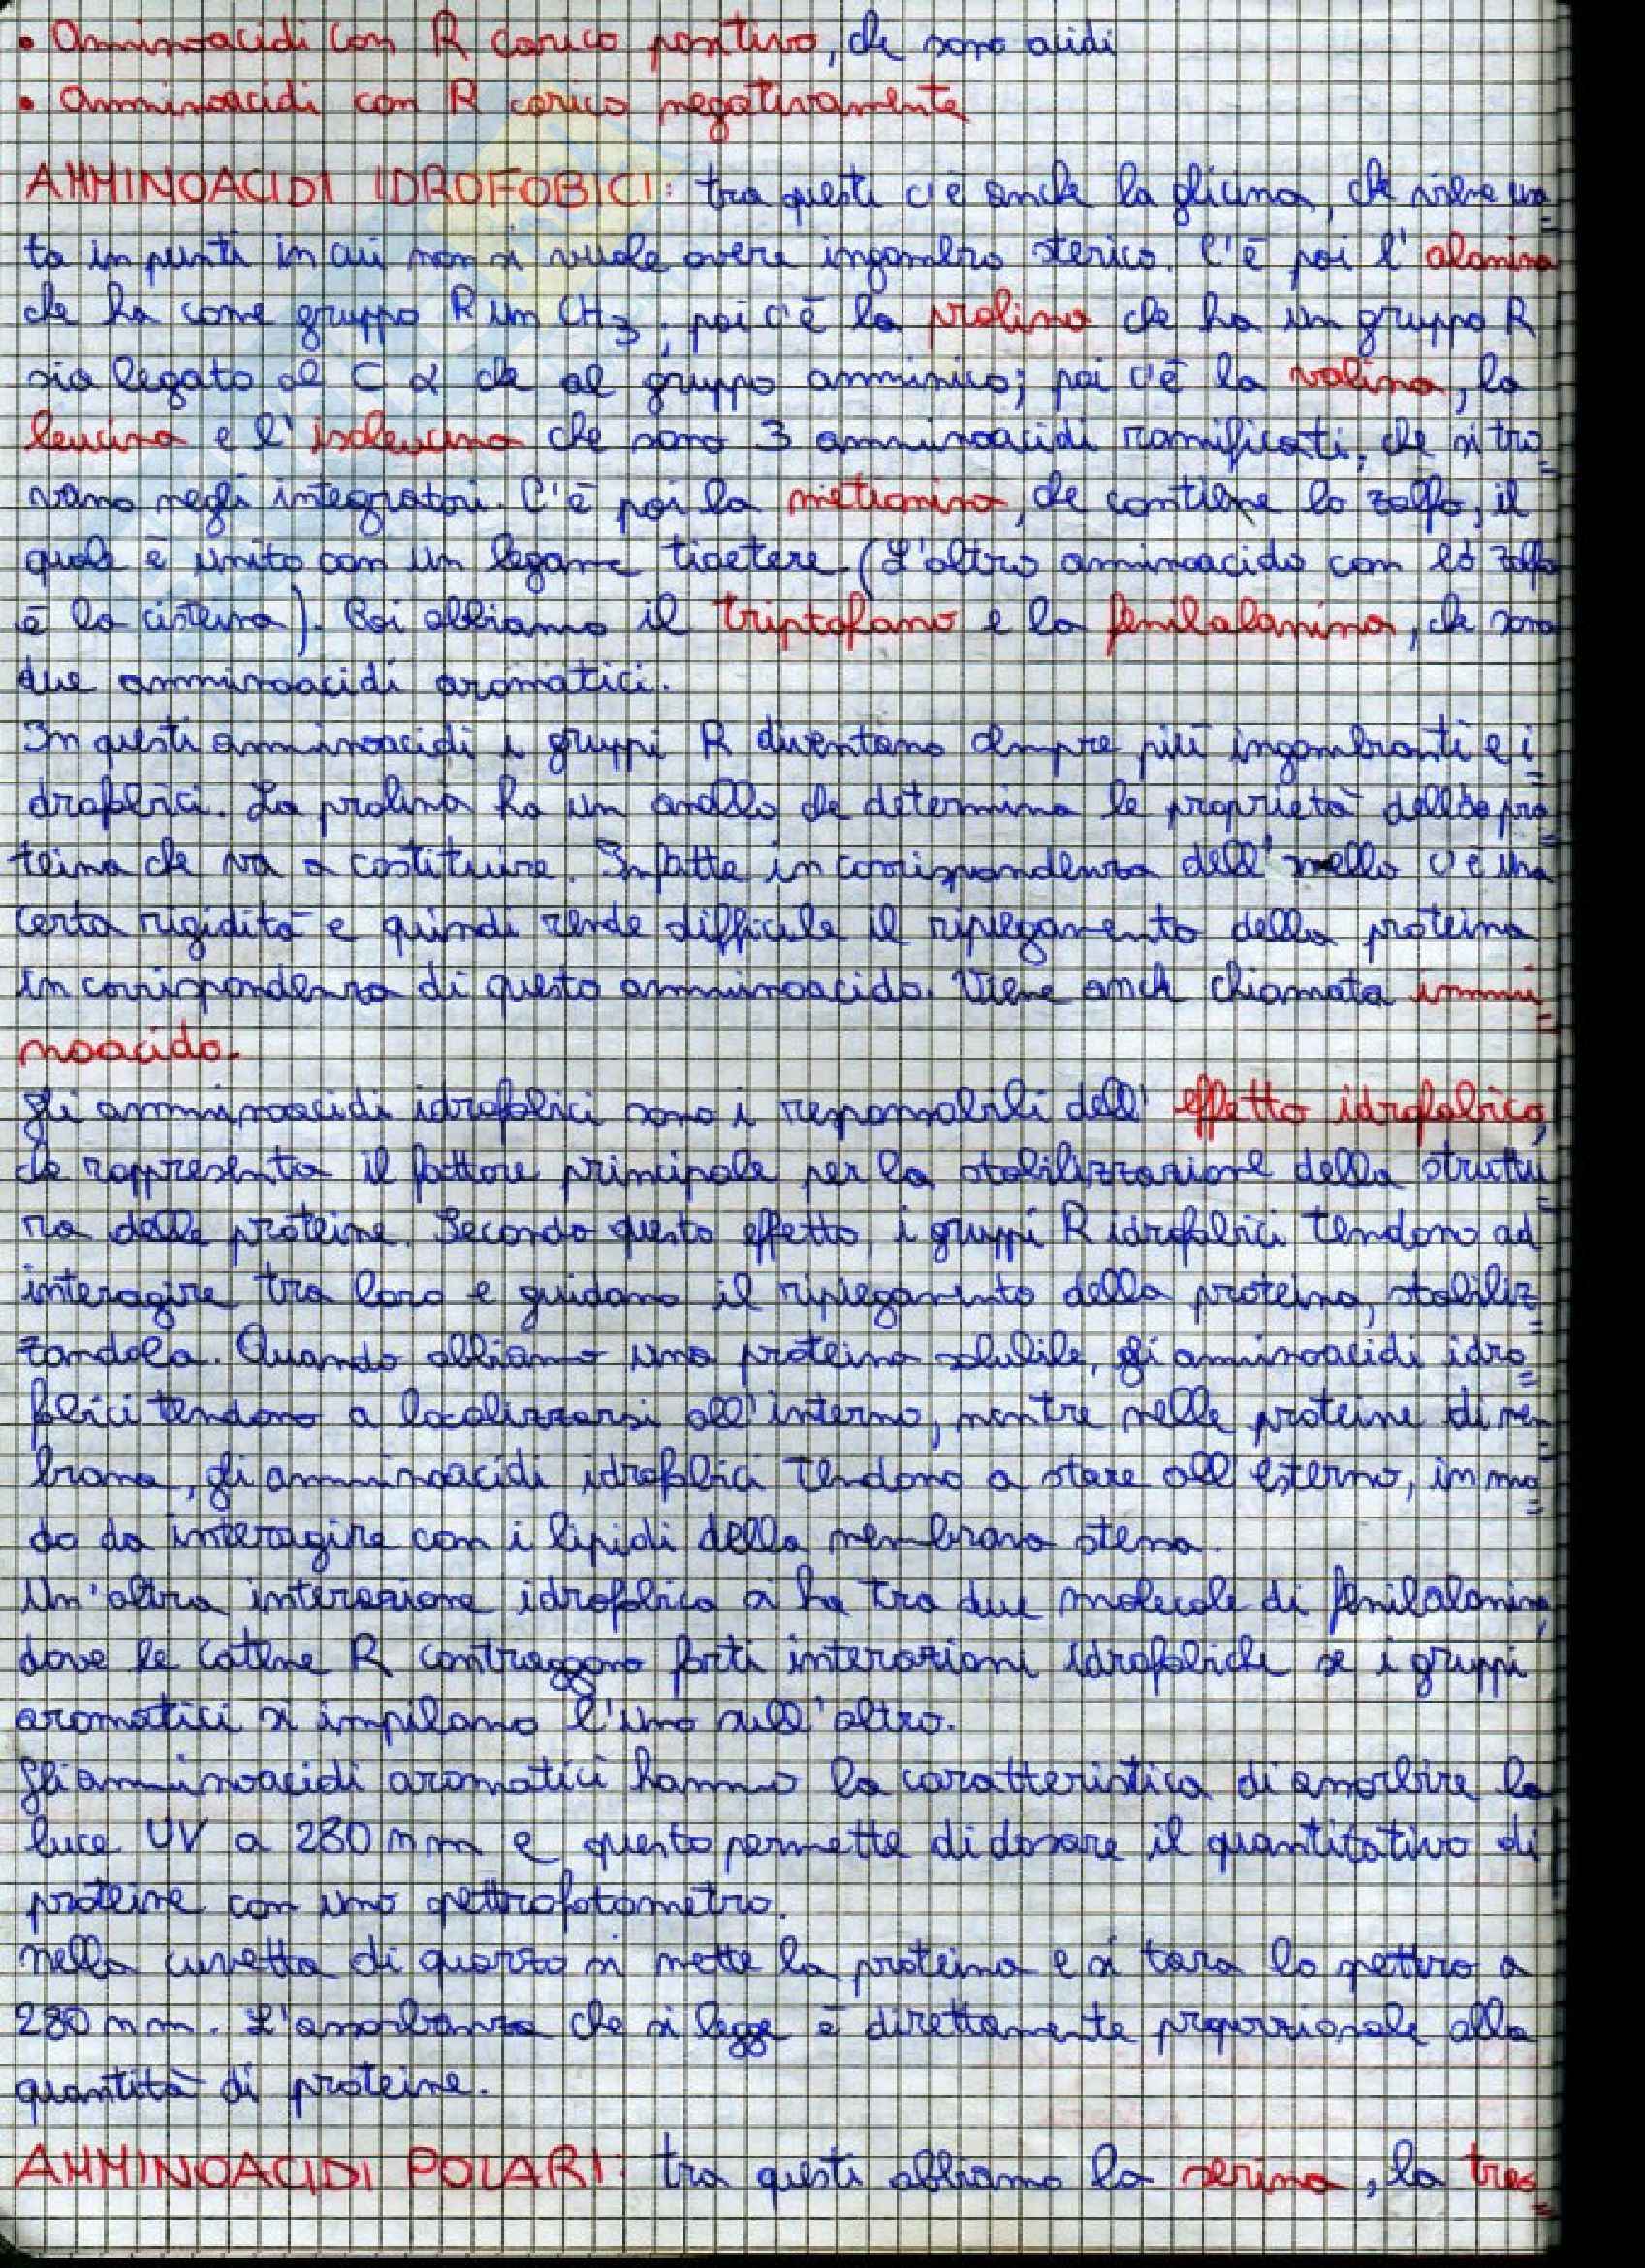 • Amminoacidi con R carico positivo, che sono acidi
• Amminoacidi con R carico negativamente
AMMINOACIDI IDROFOBICI: tra questi c'è anche la glicina, che viene usa=
ta in punti in cui non si vuole avere ingombro sterico. C'è poi l'alanina
che ha come gruppo R un CH3; poi c'è la prolina che ha un gruppo R
sia legato al C α che al gruppo amminico; poi c'è la valina, la
leucina e l'isoleucina che sono 3 amminoacidi ramificati, che si tro=
vano negli integratori. C'è poi la metionina, che contiene lo zolfo, il
quale è unito con un legame tioetere (L'altro aminoacido con lo zolfo
è la cisteina). Poi abbiamo il triptofano e la fenilalanina, che sono
due amminoacidi aromatici.
In questi amminoacidi i gruppi R diventano sempre più ingombranti e i=
drofobici. La prolina ha un anello che determina le proprietà della pro=
teina che va a costituire. Infatti in corrispondenza dell'anello c'è una
certa rigidità e quindi rende difficile il ripiegamento della proteina
in corrispondenza di questo amminoacido. Viene anch chiamata immi=
noacido.
Gli amminoacidi idrofobici sono i responsabili dell'effetto idrofobico,
che rappresenta il fattore principale per la stabilizzazione della struttu=
ra delle proteine. Secondo questo effetto, i gruppi R idrofobici tendono ad
interagire tra loro e guidano il ripiegamento della proteina, stabiliz=
zandola. Quando abbiamo una proteina solubile, gli aminoacidi idro=
fobici tendono a localizzarsi all'interno, mentre nelle proteine di mem=
brana, gli amminoacidi idrofobici tendono a stare all'esterno, in mo=
do da interagire con i lipidi della membrana stessa.
Un'altra interazione idrofobica si ha tra due molecole di fenilalanina,
dove le catene R contraggono forti interazioni idrofobiche se i gruppi
aromatici si impilano l'uno sull'altro.
Gli amminoacidi aromatici hanno la caratteristica di assorbire la
luce UV a 280 nm e questo permette di dosare il quantitativo di
proteine con uno spettrofotometro.
Nella cuvetta di quarzo si mette la proteina e si tara lo spettro a
280 nm. L'assorbanza che si legge è direttamente proporzionale alla
quantità di proteine.
AMMINOACIDI POLARI: tra questi abbiamo la serina, la treo=